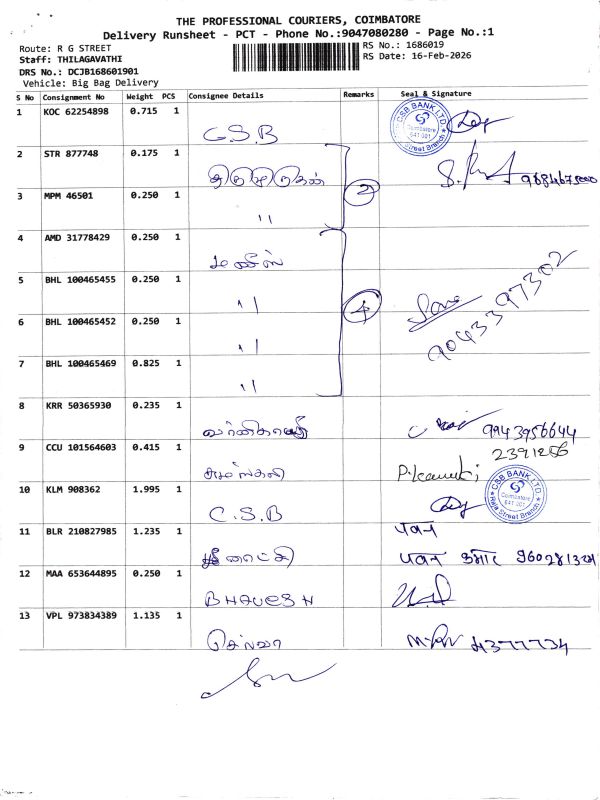 THE PROFESSIONAL COURIERS, COIMBATORE
Delivery Runsheet - PCT - Phone No.:9047080280 - Page No.:1
Route: R G STREET
RS No.: 1686019
Staff: THILAGAVATHI
RS Date: 16-Feb-2026
DRS No.: DCJB168601901
Vehicle: Big Bag Delivery
S No Consignment No Weight PCS Consignee Details Remarks Seal & Signature
1 KOC 62254898 0.715 1
C.S.B
CSB BANK LTD. Coimbatore 641 001 Raja Street Branch
2 STR 877748 0.175 1
2
3 MPM 46501 0.250 1
"
4 AMD 31778429 0.250 1
5 BHL 100465455 0.250 1
"
4
9043397302
6 BHL 100465452 0.250 1
"
7 BHL 100465469 0.825 1
"
8 KRR 50365930 0.235 1
9943956644
9 CCU 101564603 0.415 1
2391256
10 KLM 908362 1.995 1
C.S.B
CSB BANK LTD. Coimbatore 641 001 Raja Street Branch
11 BLR 210827985 1.235 1
पवन
पवन कुमार
12 MAA 653644895 0.250 1
BHAVESH
13 VPL 973834389 1.135 1
செல்வா 4377734